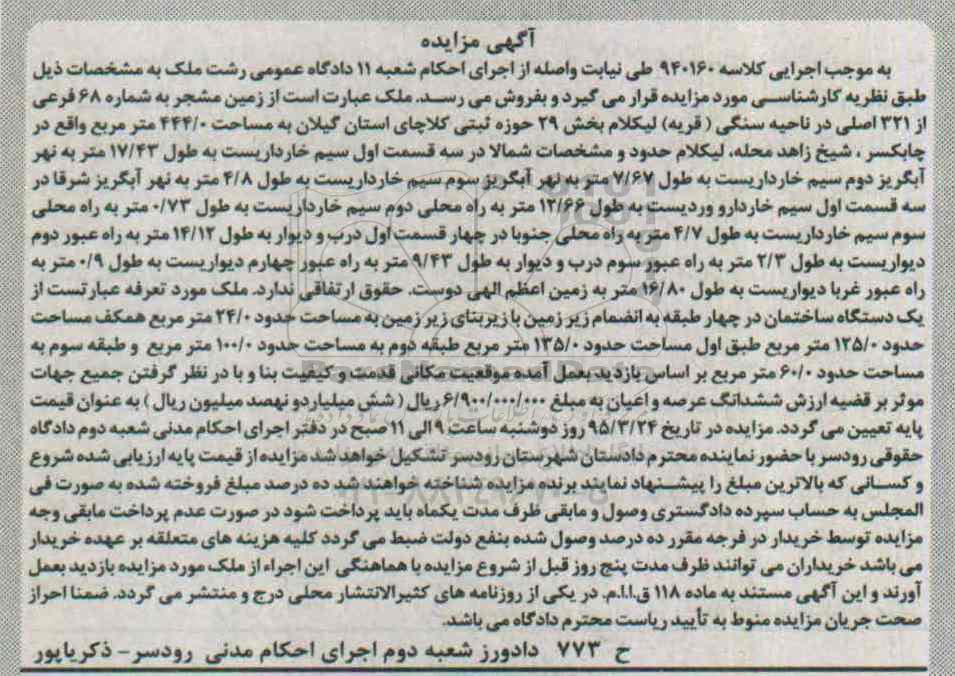 آگهی مزایده
به موجب اجرایی کلاسه ۹۴۰۱۶۰ طی نیابت واصله از اجرای احکام شعبه ۱۱ دادگاه عمومی رشت ملک به مشخصات ذیل
طبق نظریه کارشناسی مورد مزایده قرار می گیرد و بفروش می رسد. ملک عبارت است از زمین مشجر به شماره ۶۸ فرعی
از ۳۲۱ اصلی در ناحیه سنگی ( قریه) لیکلام بخش ۲۹ حوزه ثبتی کلاچای استان گیلان به مساحت ۴۴۴/۰ متر مربع واقع در
چابکسر ، شیخ زاهد محله، لیکلام حدود و مشخصات شمالا در سه قسمت اول سیم خارداریست به طول ۱۷/۴۳ متر به نهر
آبگریز دوم سیم خارداریست به طول ۷/۶۷ متر به نهر آبگریز سوم سیم خارداریست به طول ۴/۸ متر به نهر آبگریز شرقا در
سه قسمت اول سیم خاردارو وردیست به طول ۱۲/۶۶ متر به راه محلی دوم سیم خارداریست به طول ۰/۷۳ متر به راه محلی
سوم سیم خارداریست به طول ۴/۷ متر به راه محلی جنوبا در چهار قسمت اول درب و دیوار به طول ۱۴/۱۲ متر به راه عبور دوم
دیواریست به طول ۲/۳ متر به راه عبور سوم درب و دیوار به طول ۹/۴۳ متر به راه عبور چهارم دیواریست به طول ۰/۹ متر به
راه عبور غربا دیواریست به طول ۱۶/۸۰ متر به زمین اعظم الهی دوست. حقوق ارتفاقی ندارد. ملک مورد تعرفه عبارتست از
یک دستگاه ساختمان در چهار طبقه به انضمام زیر زمین با زیربنای زیر زمین به مساحت حدود ۲۴/۰ متر مربع همکف مساحت
حدود ۱۲۵/۰ متر مربع طبق اول مساحت حدود ۱۳۵/۰ متر مربع طبقه دوم به مساحت حدود ۱۰۰/۰ متر مربع و طبقه سوم به
مساحت حدود ۶۰/۰ متر مربع بر اساس بازدید بعمل آمده موقعیت مکانی قدمت و کیفیت بنا و با در نظر گرفتن جمیع جهات
موثر بر قضیه ارزش ششدانگ عرصه و اعیان به مبلغ ۶/۹۰۰/۰۰۰/۰۰۰ ریال ( شش میلیاردو نهصد میلیون ریال ) به عنوان قیمت
پایه تعیین می گردد. مزایده در تاریخ ۹۵/۳/۲۴ روز دوشنبه ساعت ۹ الی ۱۱ صبح در دفتر اجرای احکام مدنی شعبه دوم دادگاه
حقوقی رودسر با حضور نماینده محترم دادستان شهرستان رودسر تشکیل خواهد شد مزایده از قیمت پایه ارزیابی شده شروع
و کسانی که بالاترین مبلغ را پیشنهاد نمایند برنده مزایده شناخته خواهند شد ده درصد مبلغ فروخته شده به صورت فی
المجلس به حساب سپرده دادگستری وصول و مابقی ظرف مدت یکماه باید پرداخت شود در صورت عدم پرداخت مابقی وجه
مزایده توسط خریدار در فرجه مقرر ده درصد وصول شده بنفع دولت ضبط می گردد کلیه هزینه های متعلقه بر عهده خریدار
می باشد خریداران می توانند ظرف مدت پنج روز قبل از شروع مزایده با هماهنگی این اجراء از ملک مورد مزایده بازدید بعمل
آورند و این آگهی مستند به ماده ۱۱۸ ق.ا.ا.م. در یکی از روزنامه های کثیرالانتشار محلی درج و منتشر می گردد. ضمنا احراز
صحت جریان مزایده منوط به تأیید ریاست محترم دادگاه می باشد.
ح ۷۷۳ دادورز شعبه دوم اجرای احکام مدنی رودسر - ذکریاپور